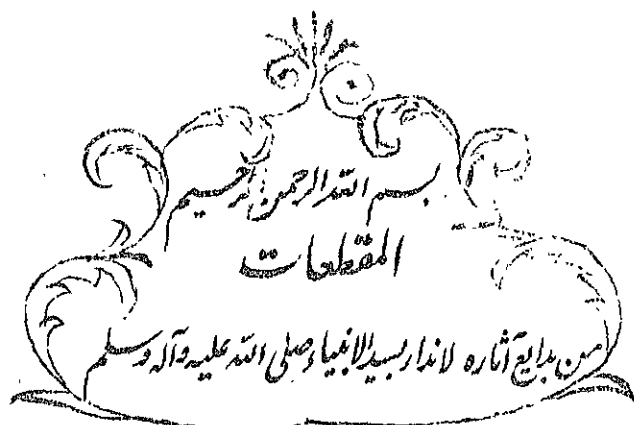 بسم الله الرحمن الرحيم
المقطعات
من بدایع آثاره لانداربسیدالانبیاء صلی الله علیه وآله وسلم